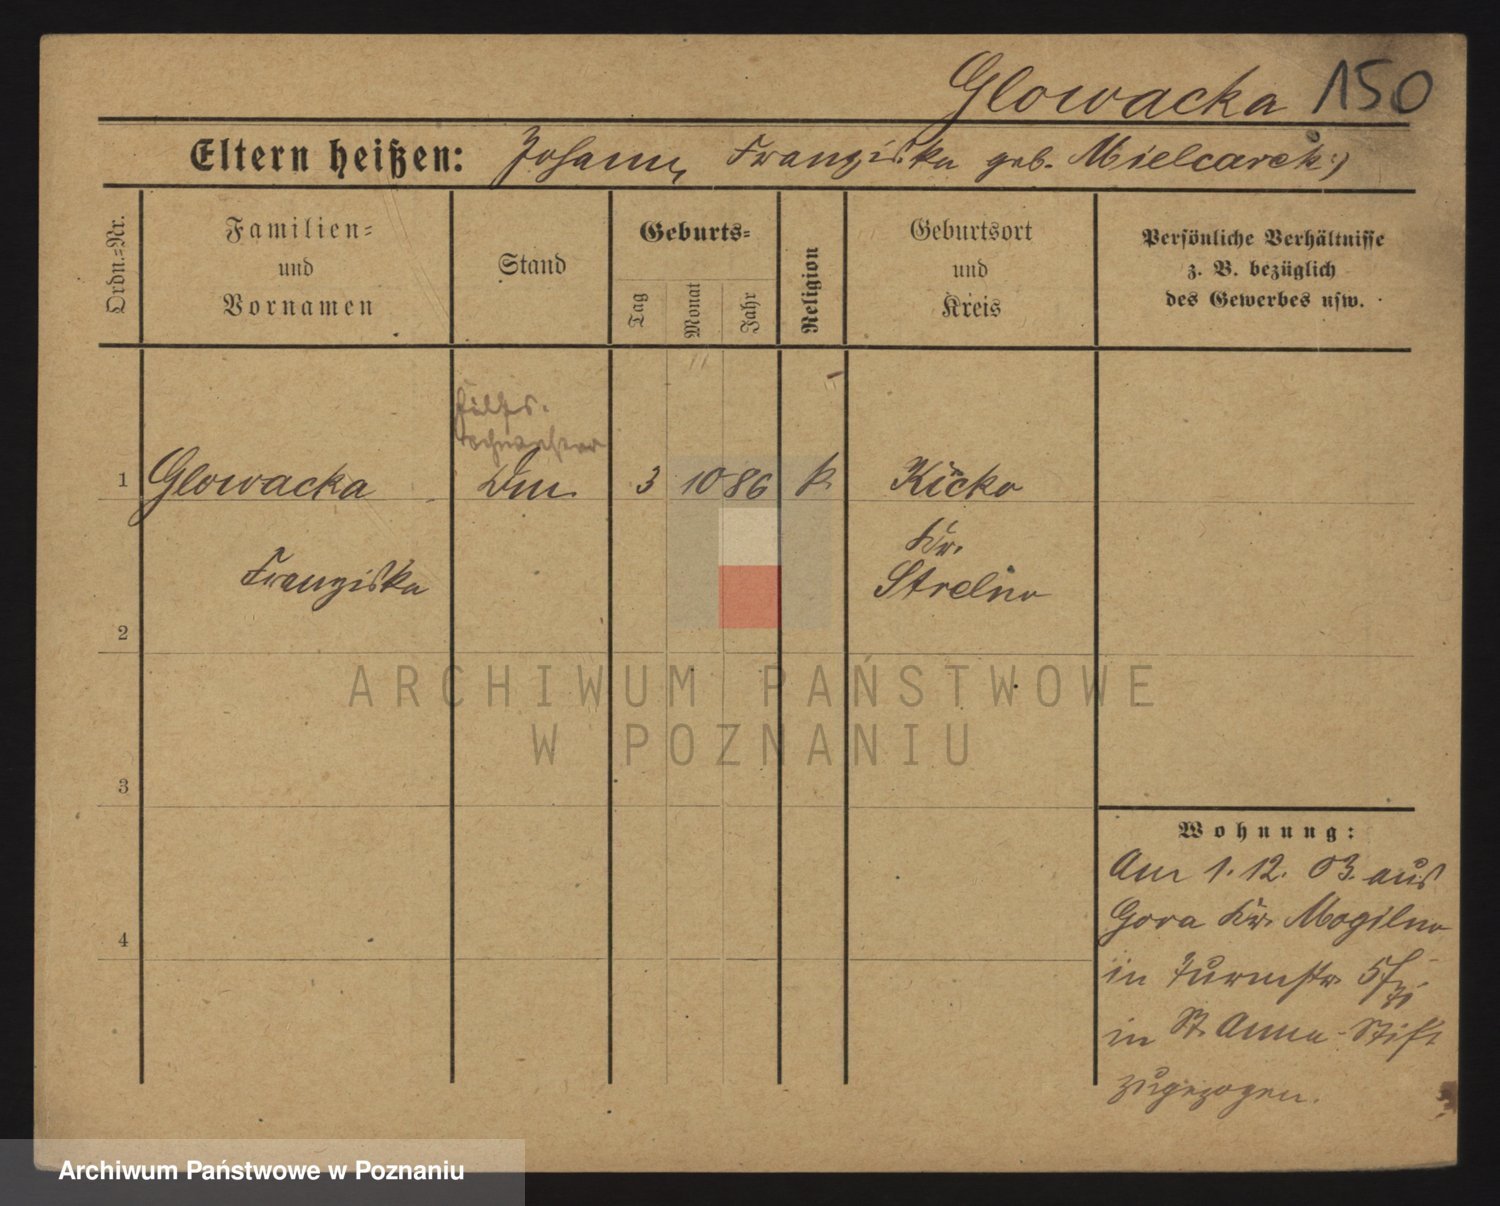 Glowacka 150
Eltern heißen: Johann, Franziska geb. Mielcarek :)
Ordn.=Nr.
Familien=
und
Vornamen
Stand
Geburts=
Tag
Monat
Jahr
Religion
Geburtsort
und
Kreis
Persönliche Verhältnisse
z. B. bezüglich
des Gewerbes usw.
Hülfs-
schwester
1 Glowacka 3 10 86 k. Kicko
Kr.
Franziska Strelno
2
ARCHIWUM PAŃSTWOWE
W POZNANIU
3
4
Wohnung:
Am 1.12.03. aus
Gora Kr. Mogilno
in Turmstr. 5
in St. Anna-Stift
zugezogen.
Archiwum Państwowe w Poznaniu